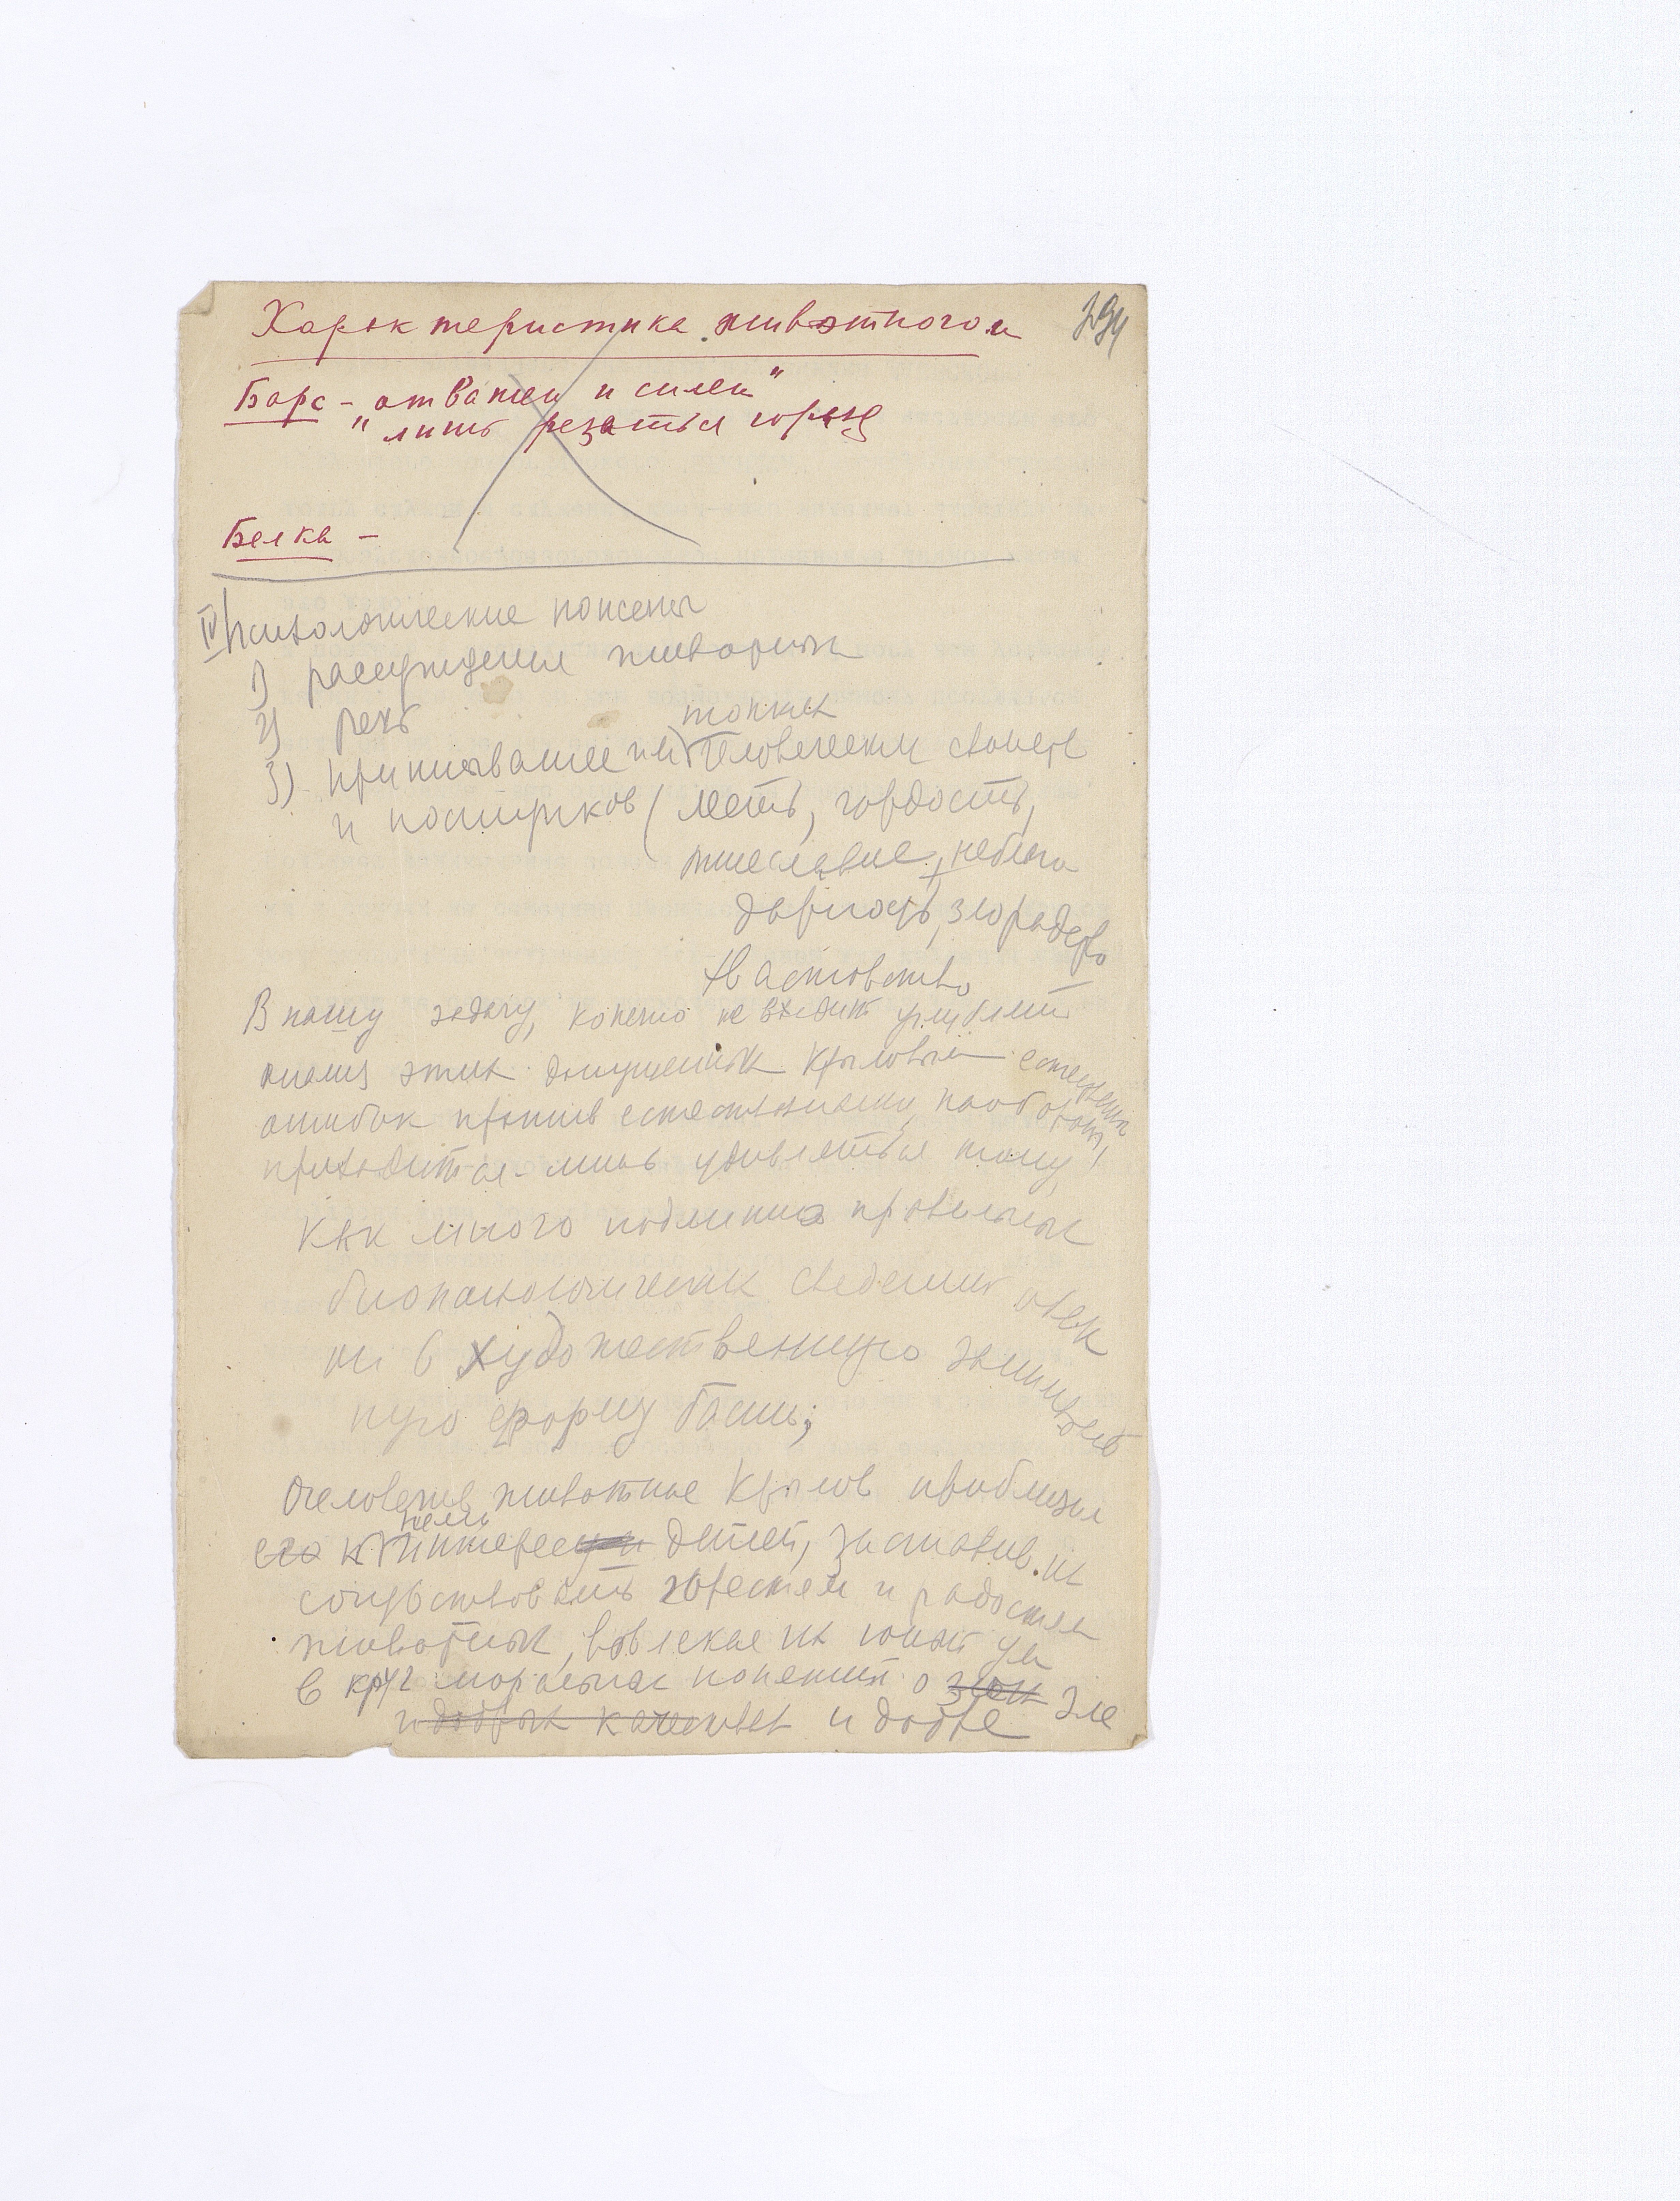 Характеристика животного
294
Барс – отважен и силен"
" лишь резаться горазд
Белка –
IV Психологические
1) рассуждения животных
2) речь
тонких
3) приписывание им человеческих свойств
и поступков (месть, гордость,
тщеславие, неблаго
дарность, злорадство
хвастовство
В нашу задачу, конечно не входит углублять
анализ этих допущенных Крыловым естественных
ошибок против естествознания, наоборот,
приходится лишь удивляться тому,
как много подлинно правильных
биопсихологических сведений облек
он в художественную заниматель
ную форму басни;
Очеловечив животное Крылов приблизил
его к интересам детей, заставив их
сочувствовать горестям и радостям
животных, вовлекая их юный ум
в круг моральных понятий о зле
и добрых качествах и добре